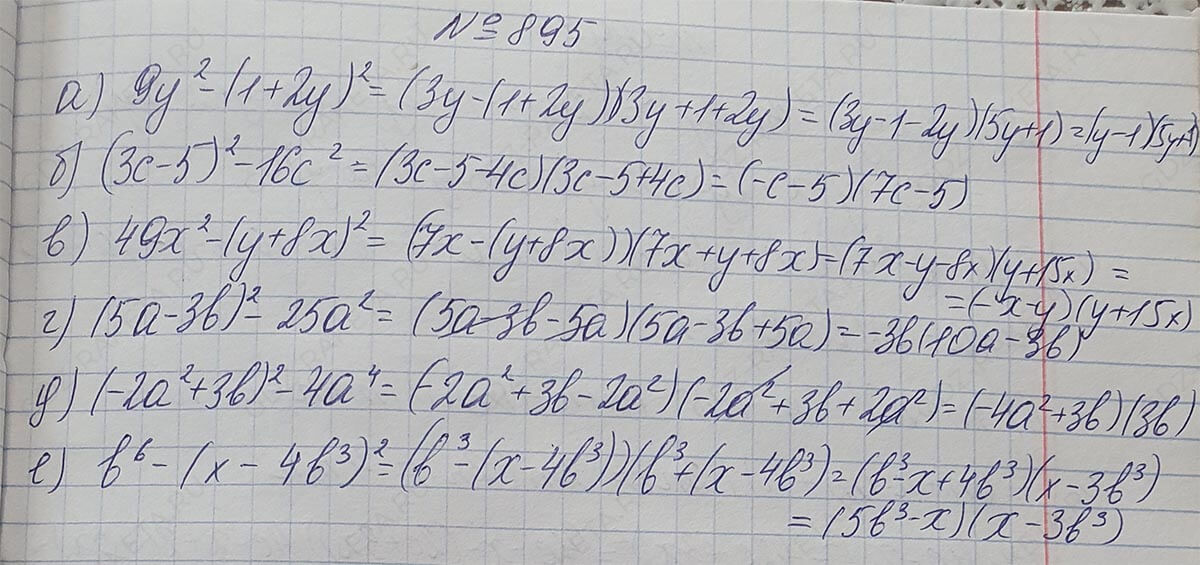 № 895
а) 9y² - (1+2y)² = (3y-(1+2y))(3y+1+2y) = (3y-1-2y)(5y+1) = (y-1)(5y+1)
б) (3c-5)² - 16c² = (3c-5-4c)(3c-5+4c) = (-c-5)(7c-5)
в) 49x² - (y+8x)² = (7x-(y+8x))(7x+y+8x) = (7x-y-8x)(y+15x) =
= (-x-y)(y+15x)
г) (5a-3b)² - 25a² = (5a-3b-5a)(5a-3b+5a) = -3b(10a-3b)
д) (-2a²+3b)² - 4a⁴ = (-2a²+3b-2a²)(-2a²+3b+2a²) = (-4a²+3b)(3b)
е) b⁶ - (x-4b³)² = (b³-(x-4b³))(b³+(x-4b³) = (b³-x+4b³)(x-3b³)
= (5b³-x)(x-3b³)